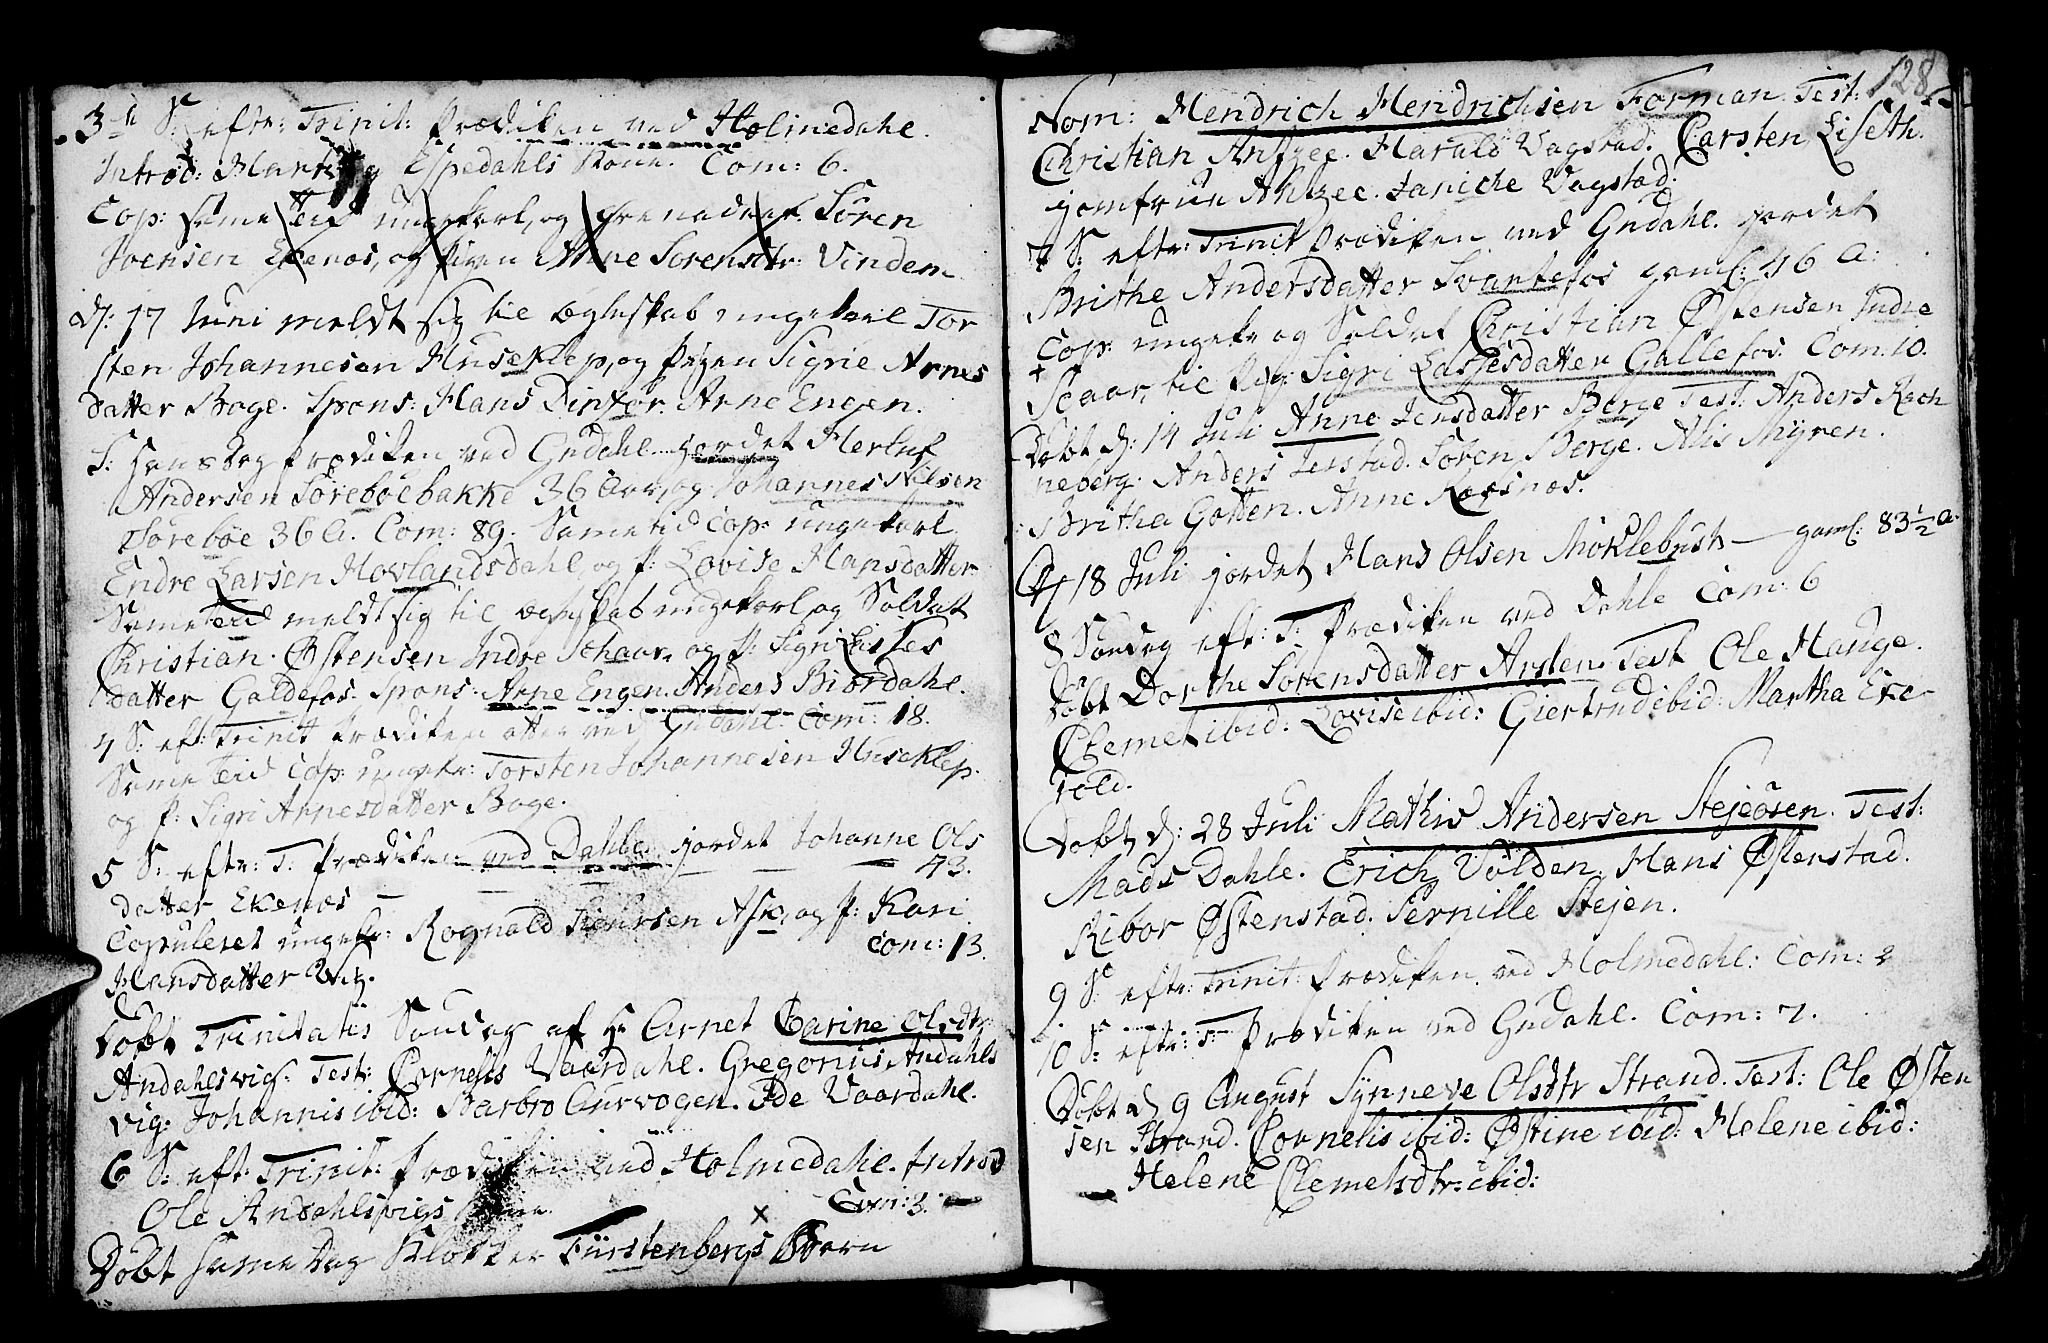 3de S: eftr: Trinit: Prædiken ved Holmedahl.
Introd: Espedahls Kone. Com: 6.
Cop: same Tid ungekarl, og Grenadeer Søren
Joensen Ekenæs, og pigen Anne Sørensdtr: Vindem
D: 17 Juni meldt sig til Ægteskab ungekarl Tor
sten Johannesen Huseklep, og pigen Sigrie Arnes
datter Boge. Spons: Hans Arne Engen.
S: Hans dag prædiken ved Gudahl. jordet Herluf
Andersen Sørebøebakke 36 Aar, og Johannes Nilsen
Sørebøe 36 A. Com: 89. Same tid Cop: ungekarl
Endre Larsen Hovlandsdahl, og p: Lovise Hansdatter
Same tid meldt sig til Ægteskab ungekarl, og Soldat
Christian Østensen Indre Schaar, og p: Sigri Lasses
datter Galdefos. Spons: Arne Engen. Anders Biordahl.
4 S: eft: Trinit Prædiken atter ved Gudahl. Com: 18.
Same tid Cop: ungek: Torsten Johannesen Huseklep.
og p: Sigri Arnesdatter Boge.
5 S: eftr: T: Prædiken ved Dahle jordet Johanne Ols
datter Ekenæs — — — — 43.
Copuleret ungek: Rognald Ask, og p: Kari
Hansdatter Com: 13.
Døbt Trinitatis Søndag af Hr Arnet Carine Olsdtr
Andahlsvig. Test: Cornelis Vaardahl. Gregorius Andahls
vig. Johannis ibid: Barbro Aurvogen. Ide Vaardahl.
6 S: eft: Trinit: Prædiken ved Holmedahl. Introd
Ole Andahlsvigs Kone. Com: 3.
Døbt same Dag Klokker Fürstenbergs Barn
128
Nom: Hendrich Hendrichsen Forman. Test:
Christian Harald Vagstad. Carsten Liseth.
jomfrue Janiche Vagstad.
7 S: eftr: Trinit Prædiken ved Gudahl. jordet
Brithe Andersdatter Svartefos gaml: 46 A:
Cop: ungek: og Soldat Christian Østensen Indre
Scaar, til pig: Sigri Lassesdatter Gallefos. Com: 10.
Døbt d: 14 Juli Anne Jensdatter Berge Test: Anders Røch
neberg. Anders Søren Berge. Alis Myren.
Britha Gotten. Anne
D 18 Juli jordet Hans Olsen Møklebust — gaml: 83½ a.
8 Søndag eft: T: Prædiken ved Dahle Com: 6
Døbt Dorthe Sørensdatter Arsten. Test Ole Hauge.
Clemet ibid: Lovise ibid: Giertrud ibid: Martha Exe
told.
Døbt d: 28 Juli Mathis Andersen Stejeøsen. Test:
Mads Dahle. Erich Vølden. Hans Østenstad.
Ribor Østenstad. Pernille Stejen.
9 S: eftr: Trinit: Prædiken ved Holmedahl: Com: 2
10 S: eftr: T: Prædiken ved Gudahl. Com: 7.
Døbt d 9 August Synneve Olsdtr Strand. Test: Ole Østen
sen Strand. Cornelis ibid: Østine ibid: Helene ibid:
Helene Clemetsdtr: ibid: